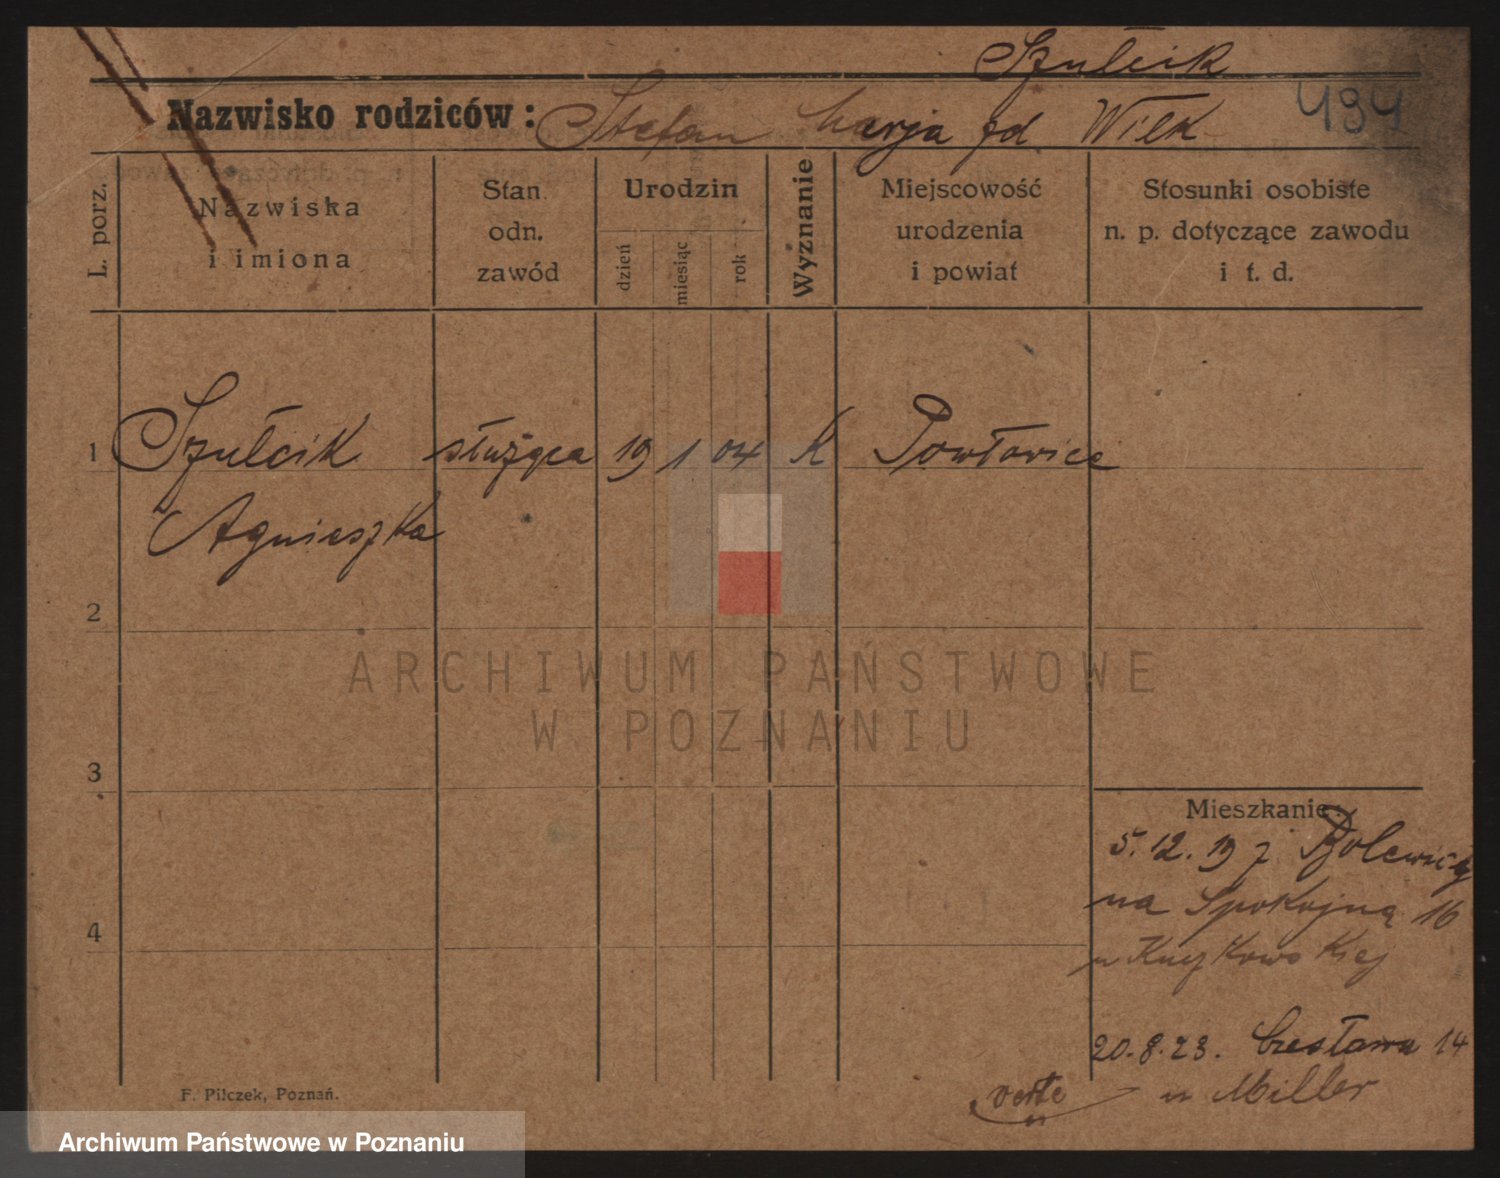 Szulcik
Nazwisko rodziców: Stefan Marja zd Wilk
494
L. porz.
Nazwiska
i imiona
Stan
odn.
zawód
Urodzin
dzień
miesiąc
rok
Wyznanie
Miejscowość
urodzenia
i powiat
Stosunki osobiste
n. p. dotyczące zawodu
i t. d.
1 Szulcik służąca 19 1 04 K Pawłowice
Agnieszka
2
ARCHIWUM PAŃSTWOWE
W POZNANIU
3
Mieszkanie:
5.12.19 z
na Spokojną 16
u
4
20.8.23. Czesława 14
u Miller
verte
F. Pilczek, Poznań.
Archiwum Państwowe w Poznaniu